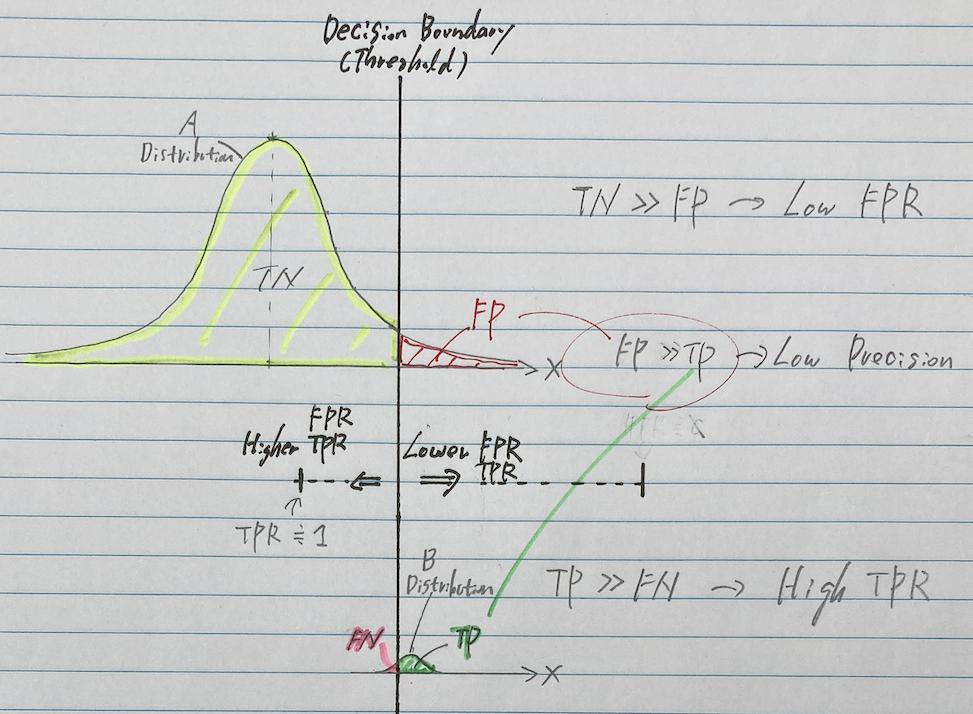 Decision Boundary
(Threshold)
A
Distribution
TN >> FP → Low FPR
TN
FP
FP >> TP → Low Precision
X
FPR
Higher TPR
Lower FPR
TPR
↑
TPR ≒ 1
B
Distribution
TP >> FN → High TPR
FN
TP
X